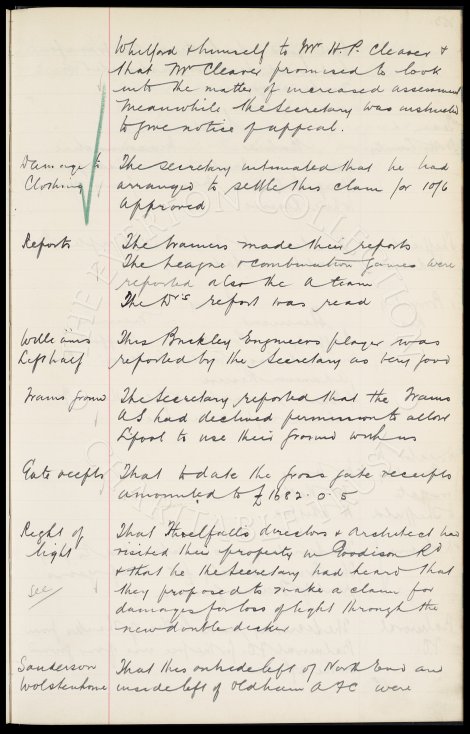 Whitford & himself to Mr H.P. Cleaver &
that Mr Cleaver promised to look
into the matter of increased assessment
Meanwhile the Secretary was instructed
to give notice of appeal.
Damage to Clothing
The Secretary intimated that he had
arranged to settle this claim for 10/6
Approved
Reports
The trainers made their reports
The League & combination games were
reported also the A team
The Drs report was read
Williams Left half
This Buckley Engineers player was
reported by the Secretary as very good
Trams ground
The Secretary reported that the Trams
AS had declined permission to allow
L'pool to use their ground with us
Gate receipts
That to date the gross gate receipts
amounted to £1682.0.5
Right of light
see
That Threlfalls directors & Architect had
visited their property in Goodison Rd
& that he the Secretary had heard that
they proposed to make a claim for
damages for loss of light through the
new double decker
Sanderson Wolstenholme
That this outside left of North End and
inside left of Oldham A FC were
THE EVERTON COLLECTION
CHARITABLE TRUST